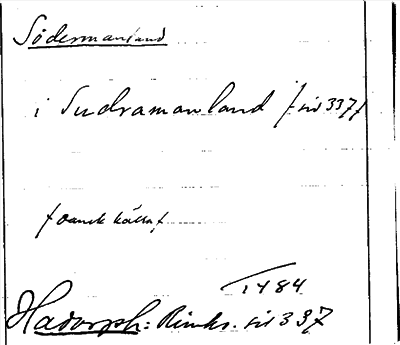 Södermanland
i Sudramanland / sid 337 /
/ dansk källa /
1484
Hadorph: Rimkr. sid 337